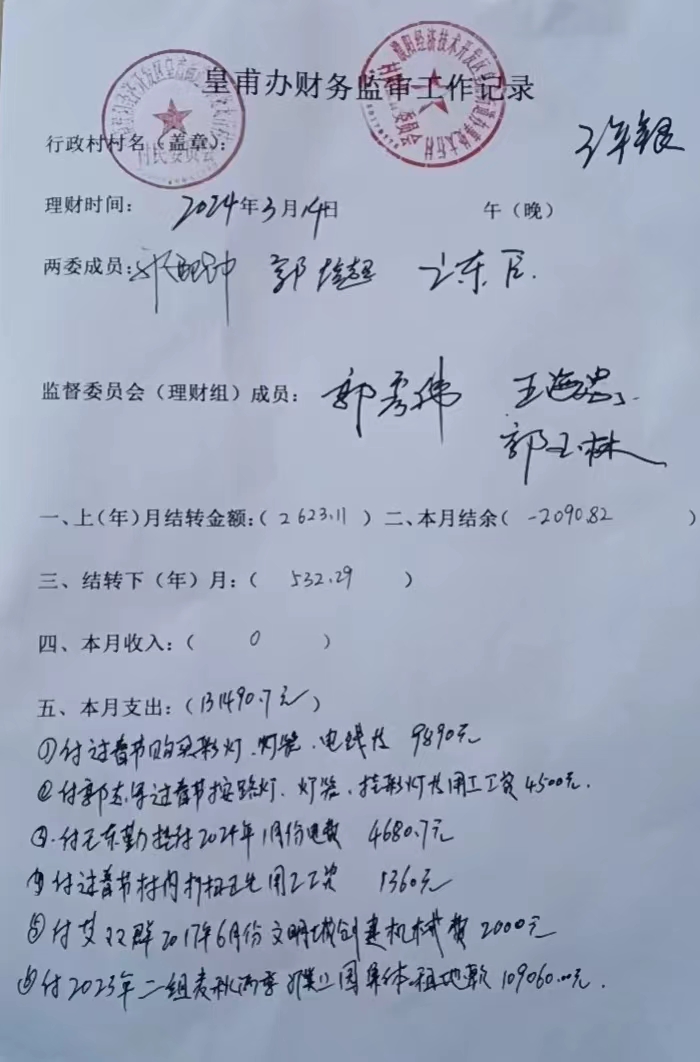 皇甫办财务监审工作记录
行政村村名(盖章):
村民委员会
理财时间: 2024年3月14日 午(晚)
两委成员: 郭
监督委员会(理财组)成员: 郭秀伟 王海
郭玉林
一、上(年)月结转金额:( 2623.11 ) 二、本月结余( -2090.82 )
三、结转下(年)月:( 532.29 )
四、本月收入:( 0 )
五、本月支出:(131490.7元)
①付过春节购买彩灯、灯笼、电线款 9890元
②付郭 过春节按路灯、灯笼、挂彩灯 用工工资4500元.
③.付 东勤垫付2024年1月份电费 4680.7元
④付过春节村内 卫生用工工资 1360元
⑤付艾双群2017年6月份文明城创建机械费2000元
⑥付2023年二组麦秋两季 工园集体租地款109060.00元.